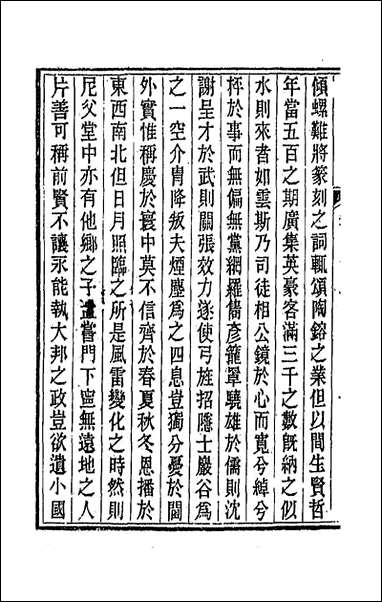 傾螺難將篆刻之詞輒頌陶鎔之業但以間生賢哲
年當五百之期廣集英豪客滿三千之數旣納之似
水則來者如雲斯乃司徒相公鏡於心而寬兮綽兮
秤於事而無偏無黨網羅儁彥籠罩驍雄於儒則沈
謝呈才於武則關張效力遂使弓旌招隱士巖谷爲
之一空介胄降叛夫煙塵爲之四息豈獨分憂於閫
外實惟稱慶於寰中莫不信齊於春夏秋冬恩播於
東西南北但日月照臨之所是風雷變化之時然則
尼父堂中亦有他鄉之子孟嘗門下寧無遠地之人
片善可稱前賢不讓永能執大邦之政豈欲遺小國